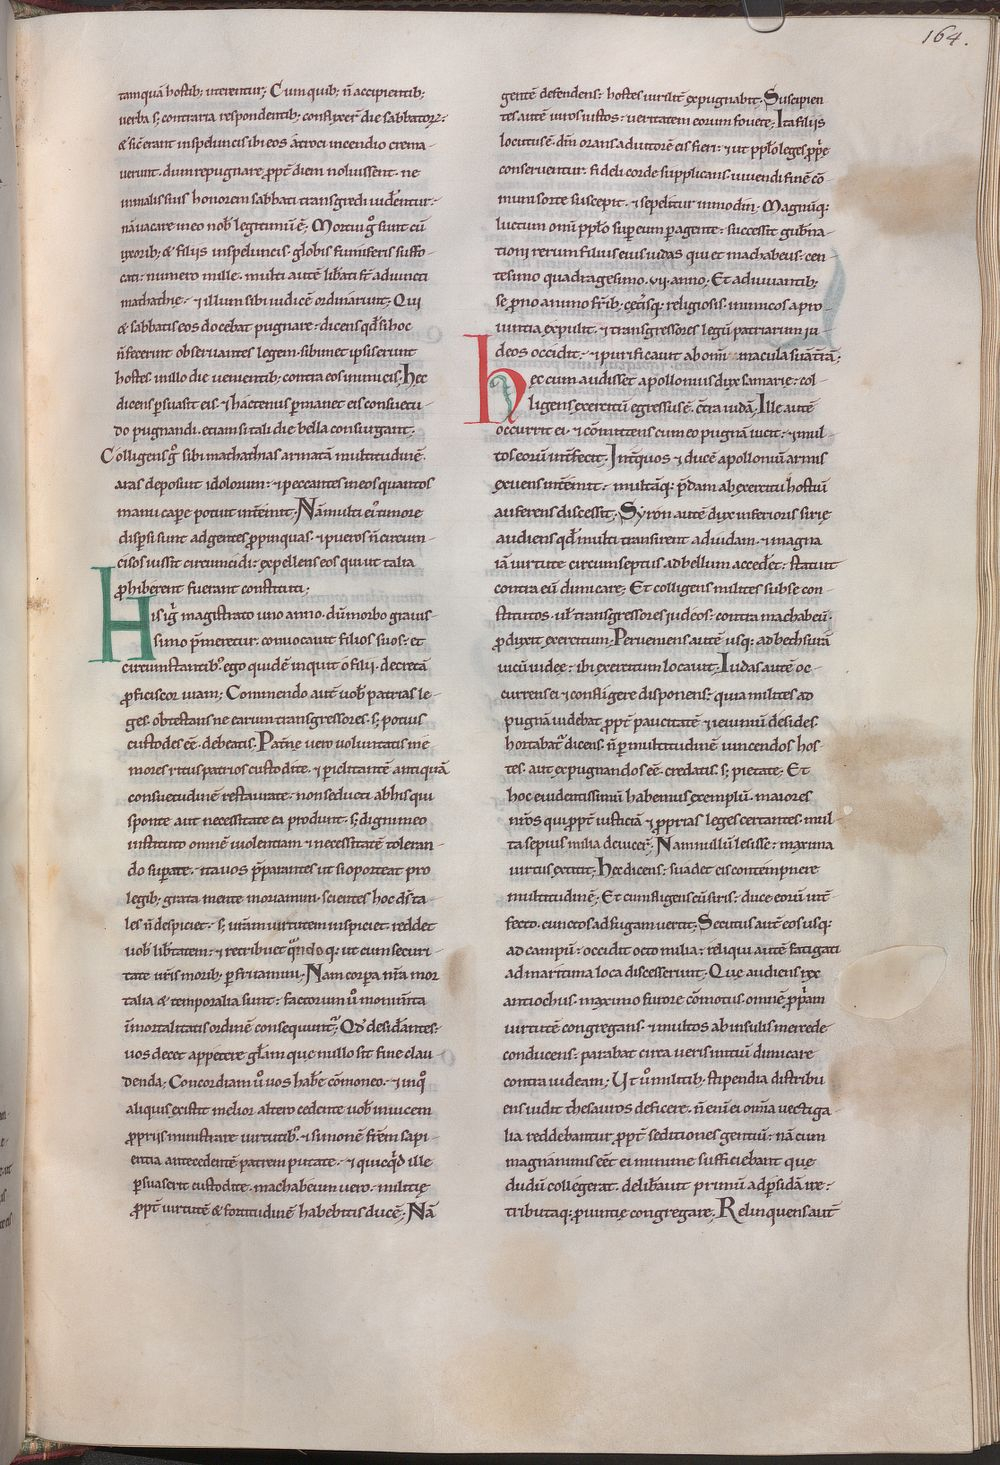 164.
tamquā hostib; uterentur; Cum quib; n̄ accipientib;
uerba s; contraria respondentib; conflixer̄ die sabbatoꝝ·
& sic̄ erant in speluncis ibi eos atroci incendio crema-
uerunt· dum repugnare ꝓpt̄ diem noluissent· ne
in malis suis honorem sabbati transgredi uideṙentur·
nā uacare in eo nob̄ legitimū ē; Mortui g° sunt cū
uxorib; & filiis in speluncis· globis fumiferis suffo-
cati· numero mille· multi autē lib̄ati st̄ adiuncti
mathathię· ⁊ illum sibi iudicē ordinarunt; Qui
& sabbatis eos docebat pugnare· dicens qd̄ si hoc
n̄ fecerint obseruantes legem· sibimet ipsi se runt
hostes in illo die uenientib; contra eos inimicis; Hęc
dicens p̱suasit eis· ⁊ hactenus p̱manet eis consuetu-
do pugnandi· etiam si tali die bella consurgant·
Colligens g° sibi mathathias armatā multitudinē
aras deposuit idolorum· ⁊ peccantes in eos quantos
manu cap̱e potuit int̄emit· Nā multi ei' timore
disp̱si sunt ad gentes ꝓpinquas· ⁊ pueros n̄ circum-
cisos iussit circumcidi· expellens eos qui ut talia
ꝓhiberent fuerant constituti;
His igr̄ magistrato uno anno· dū morbo grauis-
simo p̄meretur· conuocauit filios suos· et
circumstantib; ego quidē inquit o filii· decretā
ꝓficiscor uiam; Commendo autē uob̄ patrias le-
ges· obtestans ne earum transgressores· s; potius
custodes eē debeatis; Pat̄nę uero uoluntatis me
mores ritus patrios custodite· ⁊ piclitantē antiquā
consuetudinē restaurate· non seducti ab his qui
sponte aut necessitate ea produnt· s; digni meo
instituto omnē uiolentiam ⁊ necessitatē toleran-
do sup̱ate· ita uos p̄parantes ut si oporteat pro
legib; grata mente moriamini· scientes hoc ds̄ ta-
les n̄ despiciet· s; ur̄am uirtutem inspiciet· reddet
uob̄ lib̄tatem· ⁊ retribuet qn̄doq; ut cum securi-
tate ur̄is morib; p̱fruamini; Nam corpa nr̄a mor
talia & temporalia sunt· factorum ů monim̄ta
in mortalitatis ordinē consequunt̄; Qd̄ desid̄antes·
uos decet appetere gl̄am que nullo sit fine clau-
denda; Concordiam ů uos hab̄e cōmoneo· ⁊ in q°
aliquis existit melior altero cedente uob̄ inuicem
ꝓpriis ministrare uirtutib;· ⁊ simonē fr̄em sapi-
entia antecedentē patrem putate· ⁊ quicq̄d ille
p̱suaserit custodite· machabeum uero· militię
ꝓpt̄ uirtutē & fortitudinē habebitis ducē; Nā
gentē defendens· hostes uirilit̄ expugnabit· Suscipien
tes autē uiros iustos· ueritatem eorum fouete; Ita filiis
locutus ē· dm̄ orans adiutorē eis fieri· ⁊ ut ppl̄o leges ꝓprię
conseruentur· fideli corde supplicans· uiuendi finē cō
muni sorte suscepit· ⁊ sepelitur in modin; Magnūq;
luctum omni ppl̄o sup̱ eum p̱agente· successit gub̄na-
tioni rerum filius eius iudas qui et machabeus· cen-
tesimo quadragesimo· vii· anno; Et adiuuantib;
se prono animo fr̄ib; cet̄isq; religiosis· inimicos a pro
uintia expulit· ⁊ transgressores legū patriarum iu-
deos occidit· ⁊ purificauit ab omi macula suā t̄rā;
Hec cum audisset apollonius dux samarię· col-
ligens exercitū egressus ē· c̄tra iudā; Ille autē
occurrit ei· ⁊ cōmittens cum eo pugnā uicit· ⁊ mul-
tos eorū int̄fecit; Int̄ quos ⁊ ducē apolloniū armis
exuens int̄emit· multāq; p̄dam ab exercitu hostiū
auferens discessit; Syron autē dux inferioris sirię
audiens qd̄ multi transirent ad iudam· ⁊ magna
iā uirtute circumseptus ad bellum accedet̄· statuit
contra eū dimicare; Et colligens milites sub se con-
stitutos· ut̄ transgressores iudeos· contra machabeū
ꝓduxit exercitum; Perueniens autē usq; ad bechsurā
uicū iudeę· ibi exercitum locauit; Iudas autē oc-
currens ei ⁊ confligere disponens· quia milites ad
pugnā uidebat ꝓpt̄ paucitatē ⁊ ieiuniū desides·
hortabat̄ dicens· n̄ p̱ multitudinē uincendos hos-
tes· aut expugnandos eē· credatis· s; pietate; Et
hoc euidentissimū habemus exemplū· maiores
nr̄os qui ꝓpt̄ iusticiā ⁊ ꝓprias leges certantes· mul-
ta sepius milia deuicer̄; Nam nullū lesisse· maxima
uirtus extitit; Hęc dicens· suadet eis contempnere
multitudinē; Et confligens cū siris· duce eorū int̄
fecto· cunctos ad fugam uertit; Secutus autē eos usq;
ad campū· occidit octo milia· reliqui autē fatigati
ad maritima loca discesserunt; Que audiens rex
antiochus· maximo furore cōmotus· omnē ꝓp̄am
uirtutē congregans· ⁊ multos ab insulis mercede
conducens· parabat circa ueris initiū dimicare
contra iudeam; Ut ů militib; stipendia distribu
ens uidit thesauros deficere· n̄ eni ei om̄a uectiga-
lia reddebantur ꝓpt̄ seditiones gentiū· nā cum
magnanimus eēt ei minime sufficiebant que
dudū collegerat· delib̄auit primū ad p̱sidā ire·
tributaq; ꝓuintię congregare; Relinquens aut̄